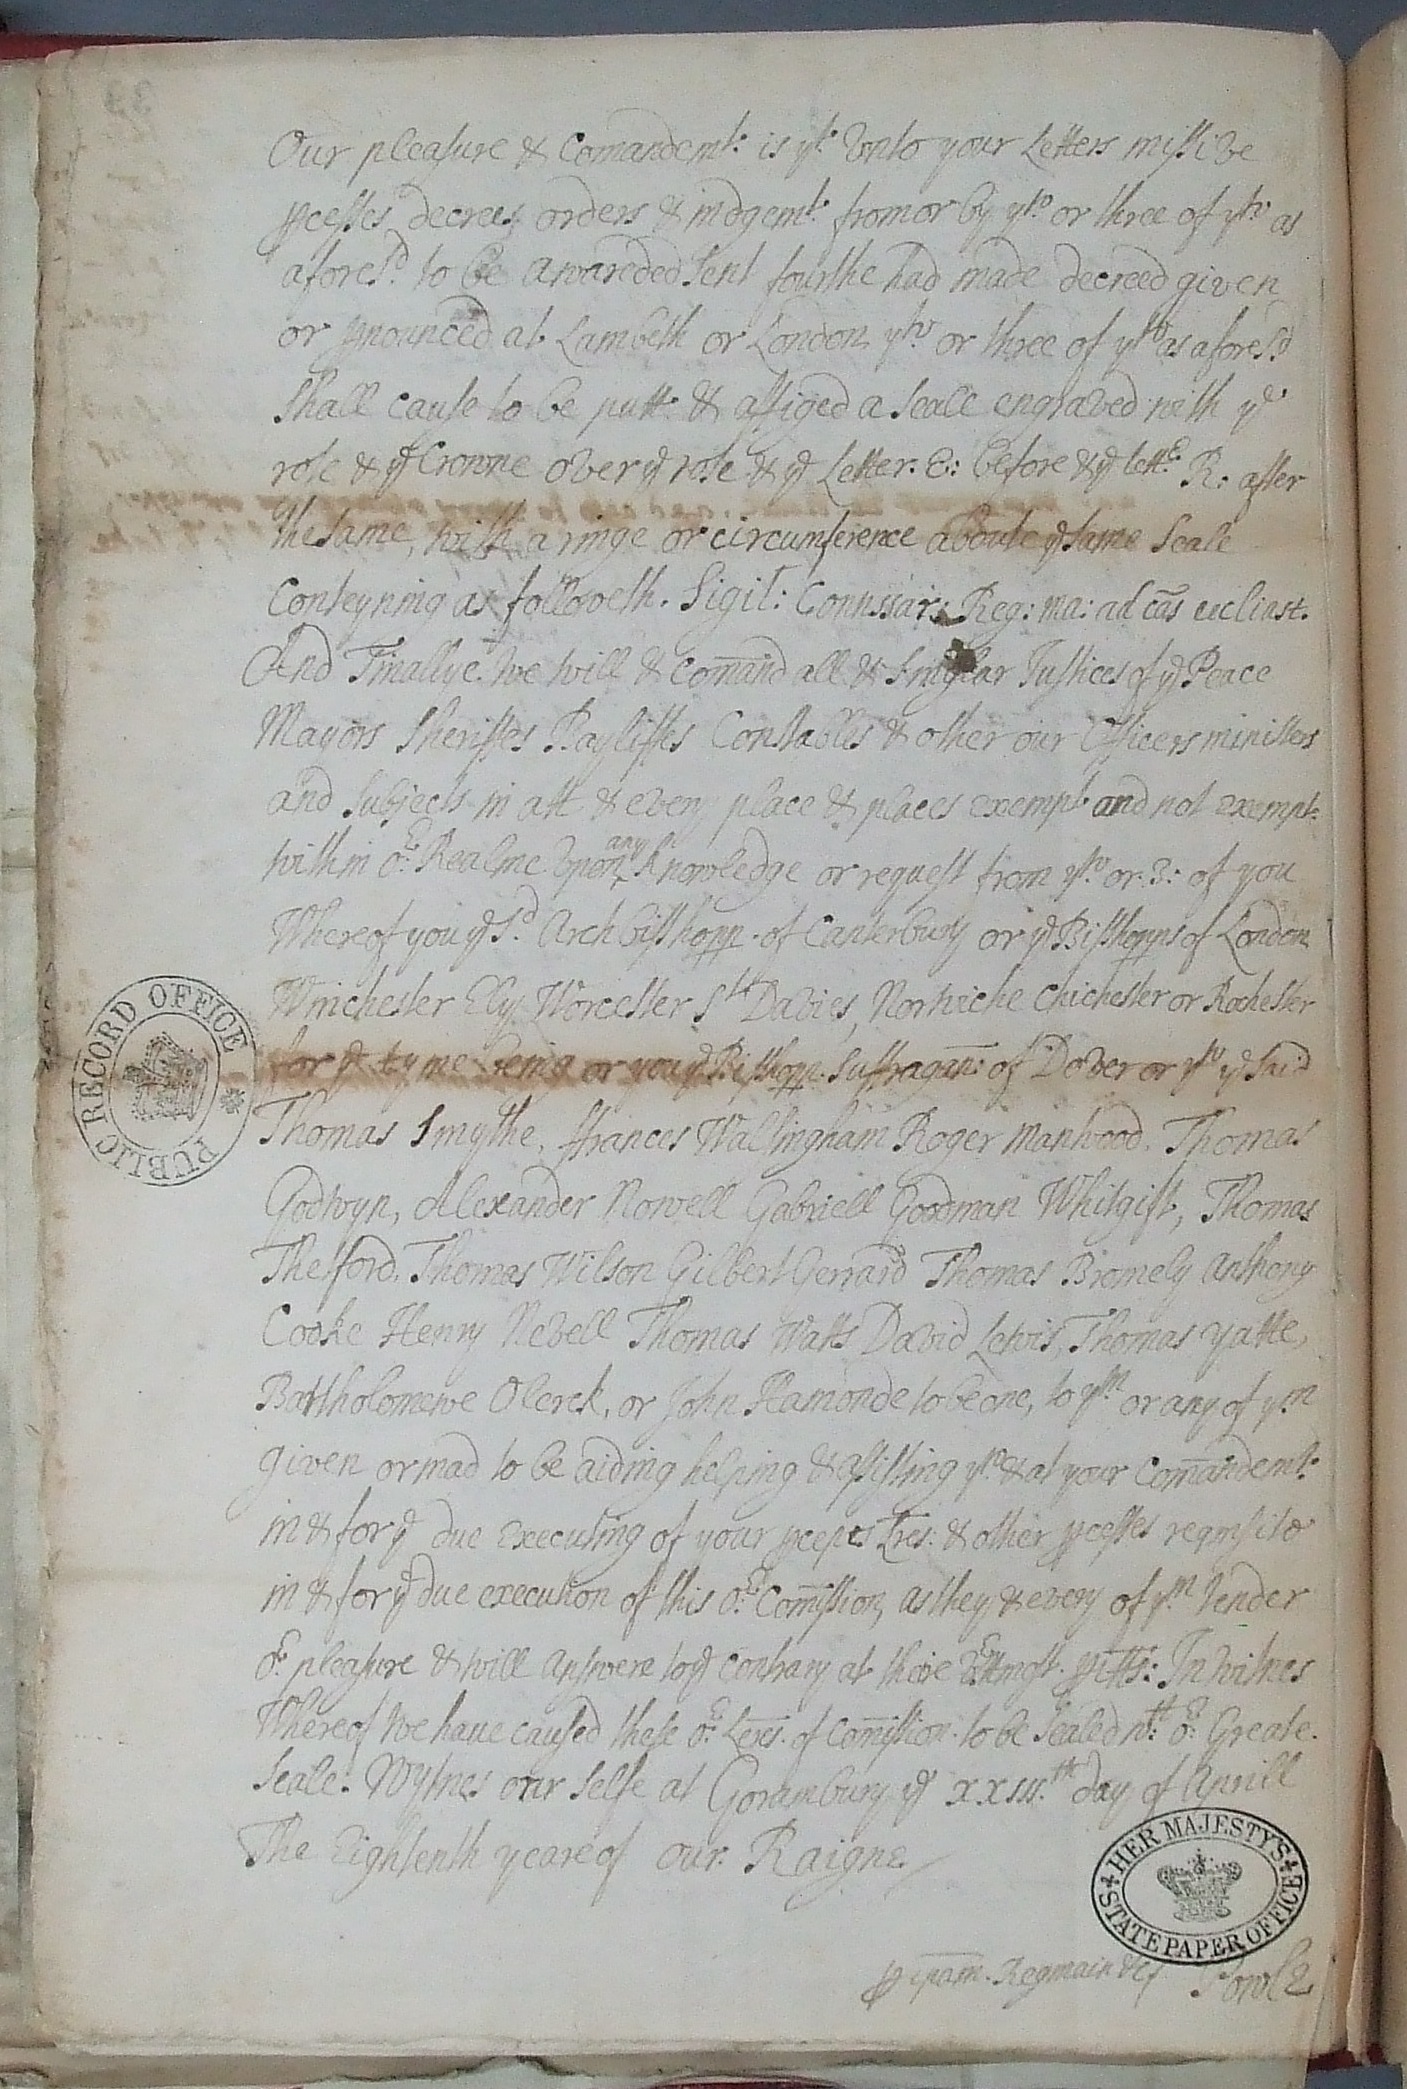 Our pleasure & Comandemt. is yt. Unto your Letters missive
pcesses decrees orders & iudgemt. from or by yu. or three of yu. as
aforesd. to be awareded sent fourthe had made decreed given
or pnounced at Lambeth or London yu. or three of yu. as aforesd
shall cause to be putt & affixed a seale engraved with ye
rose & ye Crowne over ye rose & ye Letter. E: before & ye lettr. R: after
the same, with a ringe or circumference aboute ye same Seale
Conteyning as followeth. Sigil: Comissar: Reg: ma: ad cas eccliast.
And Finallye We will & comand all & singlar Justices of ye Peace
Mayors Sheriffes Bayliffes Constables & other our Officers ministers
and Subjects in all & every place & places exempt and not exempt
within or. Realme Upon any Knowledge or request from yu. or 3: of you
Whereof you ye sd. Archbisshopp of Canterbury or ye Bisshopps of London
Winchester Ely Worcester St. Davies, Norwiche Chichester or Rochester
for ye tyme being or you ye Bisshopp Suffragan: of Dover or yu ye Said
Thomas Smythe, ffrances Walsingham Roger Manwood. Thomas
Godwyn, Alexander Nowell Gabriell Goodman Whitgift, Thomas
Thetford. Thomas Wilson Gilbert Gerrard Thomas Bromely Anthony
Cooke Henry Nevell Thomas Watts David Lewis, Thomas Yatte,
Bartholomewe Clerck, or John Hamonde to be one, to ym or any of ym
given or mad to be aiding helping & assisting yu & at your comandemt.
in & for ye due Executing of your pcepts Lres. & other pcesses requisite
in & for ye due execution of this or. Comission, as they & every of ym tender
or. pleasure & will answere to ye contrary at theire Uttmost Ills: In witnes
Whereof We have caused these or. Lres. of Comission to be sealed wth. or. Greate
Seale. Wytnes our Selfe at Gorambury ye xxiii.th day of Aprill
The Eightenth yeare of our. Raigne
p ipam. Reginam &c Powle
PUBLIC RECORD OFFICE
HER MAJESTY'S STATE PAPER OFFICE